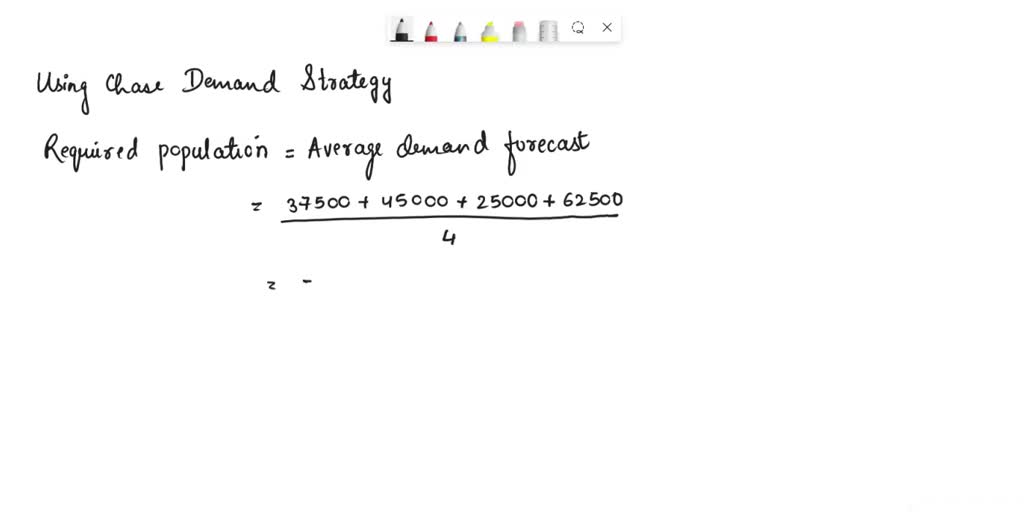 Using Chase Demand Strategy
Required population = Average demand forecast
= 37500 + 45000 + 25000 + 62500
4
= -